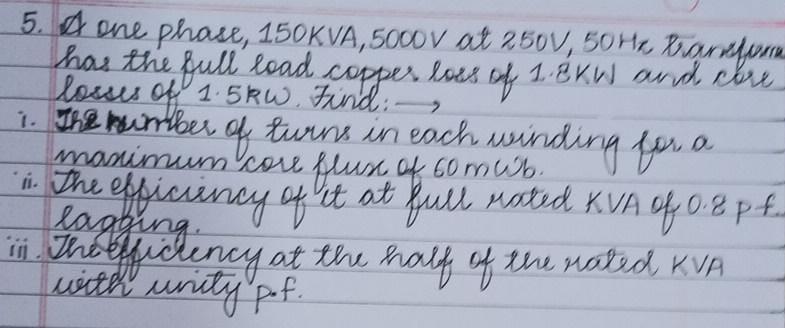 5. A one phase, 150KVA, 5000V at 250V, 50Hz transform
has the full load copper loss of 1.8KW and core
losses of 1.5KW. Find: →
i. The number of turns in each winding for a
maximum core flux of 60mWb.
ii. The efficiency of it at full rated KVA of 0.8 p.f.
lagging.
iii. The efficiency at the half of the rated KVA
with unity p.f.